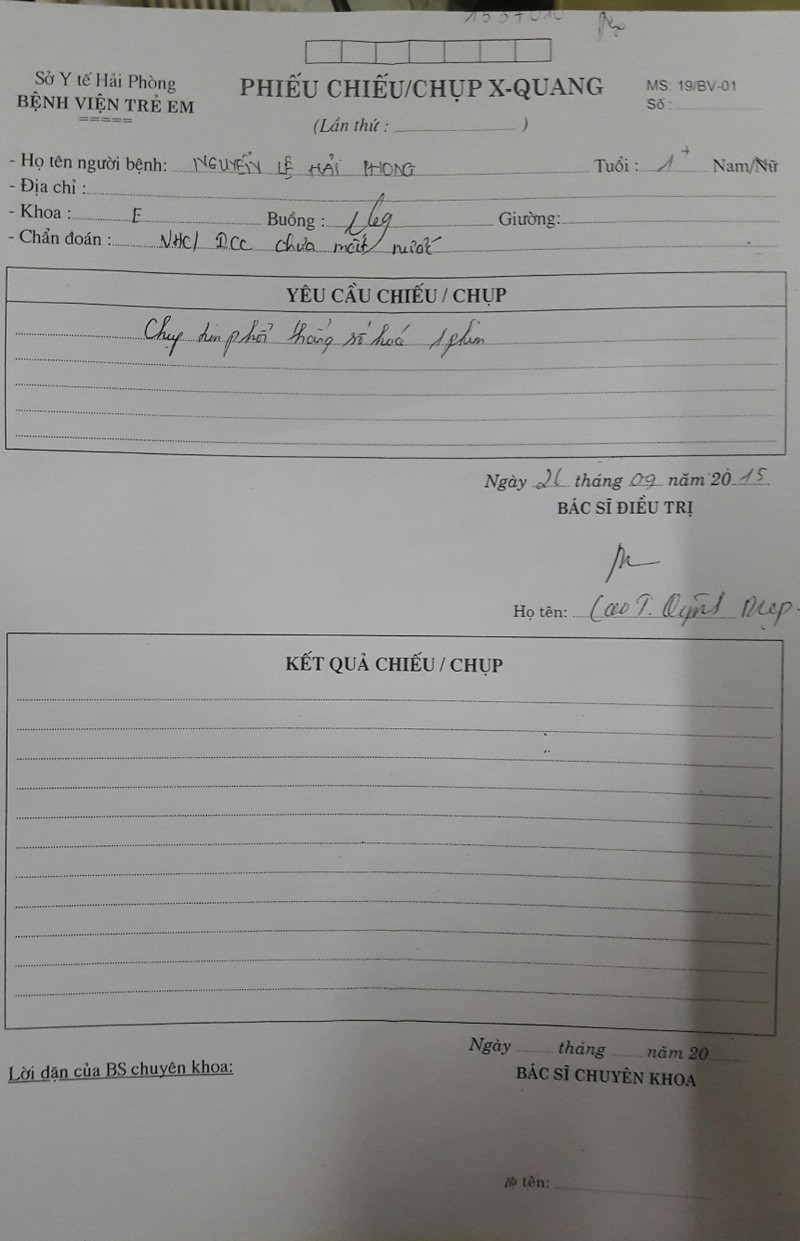 Sở Y tế Hải Phòng
BỆNH VIỆN TRẺ EM
PHIẾU CHIẾU/CHỤP X-QUANG
(Lần thứ : )
MS: 19/BV-01
Số :
- Họ tên người bệnh: NGUYỄN LÊ HẢI PHONG Tuổi : 1+ Nam/Nữ
- Địa chỉ :
- Khoa : E Buồng : Giường:
- Chẩn đoán : DCC chưa mất nước
YÊU CẦU CHIẾU / CHỤP
Chụp tim phổi thẳng số hoá 1 phim
Ngày tháng 09 năm 2015
BÁC SĨ ĐIỀU TRỊ
Họ tên: Cao T. Quỳnh
KẾT QUẢ CHIẾU / CHỤP
Ngày tháng năm 20
Lời dặn của BS chuyên khoa:
BÁC SĨ CHUYÊN KHOA
tên: